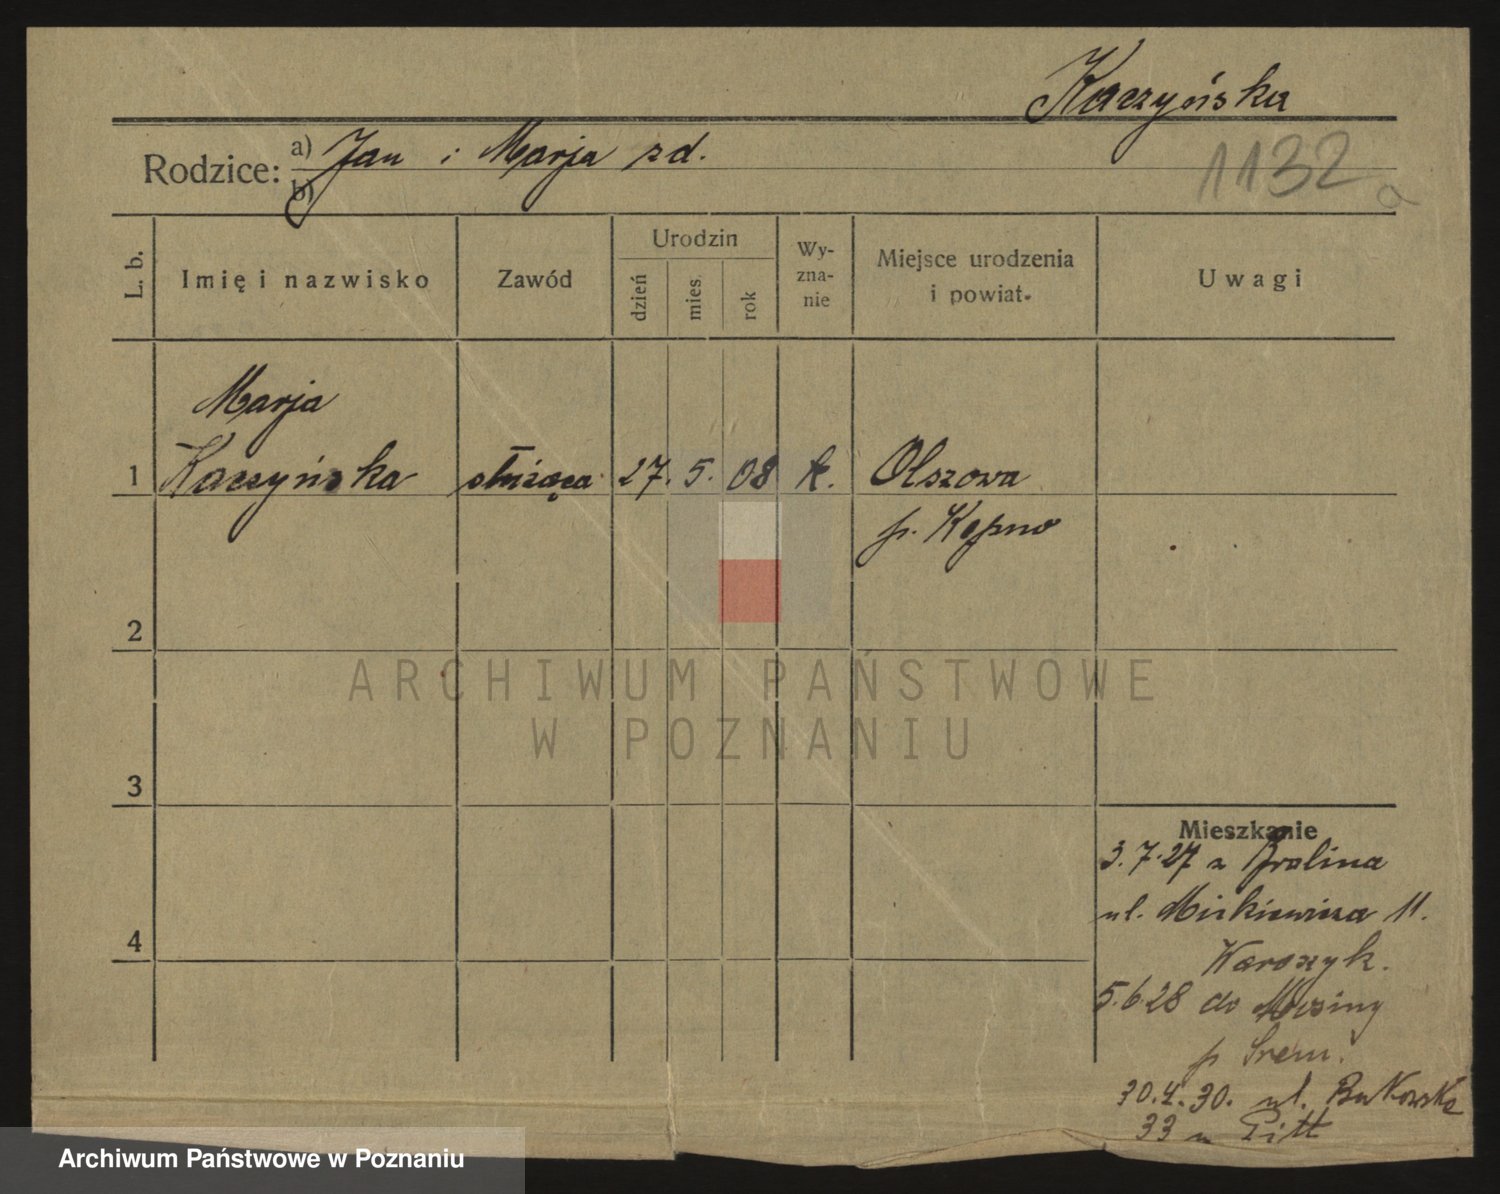 Kaczyńska
Rodzice: a) Jan i Marja zd.
b)
1132
a
L. b.
Imię i nazwisko
Zawód
Urodzin
dzień
mies.
rok
Wy-
zna-
nie
Miejsce urodzenia
i powiat.
Uwagi
Marja
1 Kaczyńska służąca 27. 5. 08 k. Olszowa
p. Kępno
2
3
4
Mieszkanie
3.7.27 z
ul. Mickiewicza 11.
Waroszyk.
5.6.28 do Mosiny
p Śrem.
30.4.30. ul. Bukowska
33 u Pitt
ARCHIWUM PAŃSTWOWE
W POZNANIU
Archiwum Państwowe w Poznaniu